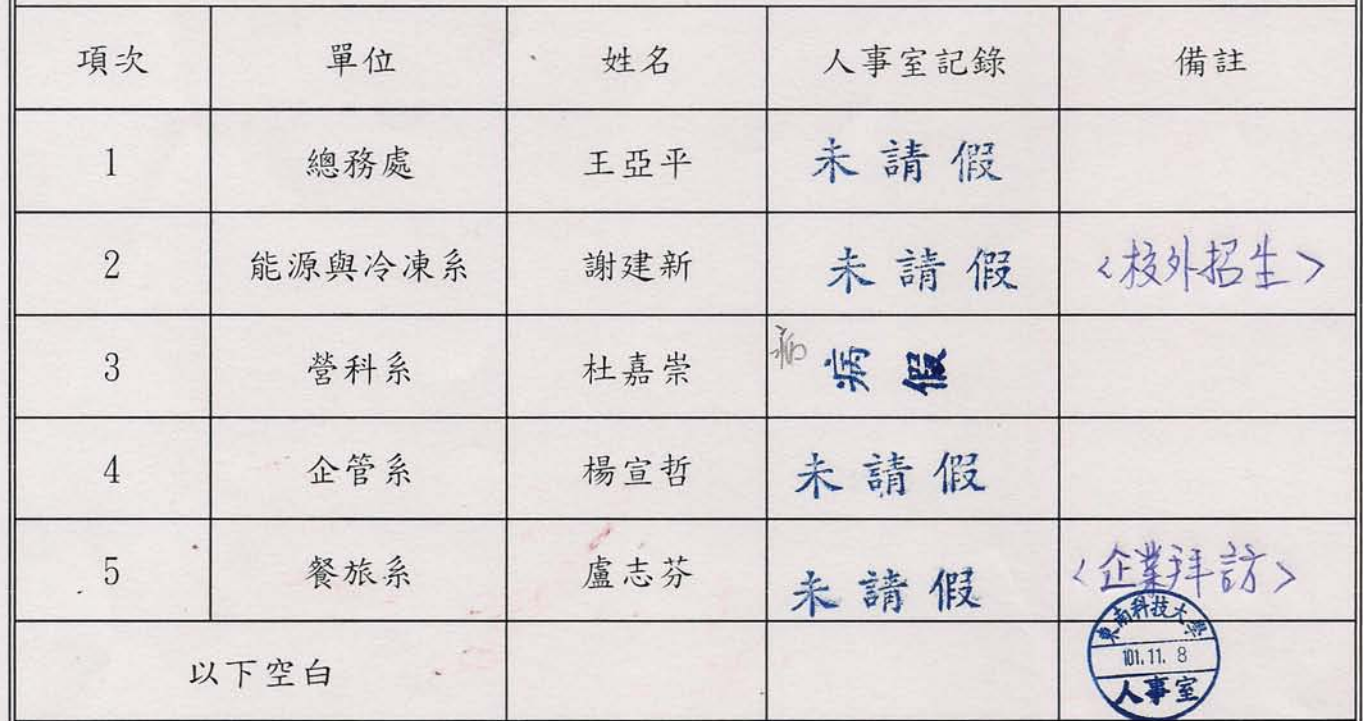 項次 單位 姓名 人事室記錄 備註
1 總務處 王亞平 未請假
2 能源與冷凍系 謝建新 未請假 <校外招生>
3 營科系 杜嘉崇 病 病假
4 企管系 楊宣哲 未請假
5 餐旅系 盧志芬 未請假 <企業拜訪>
以下空白
東南科技大學
101.11.8
人事室